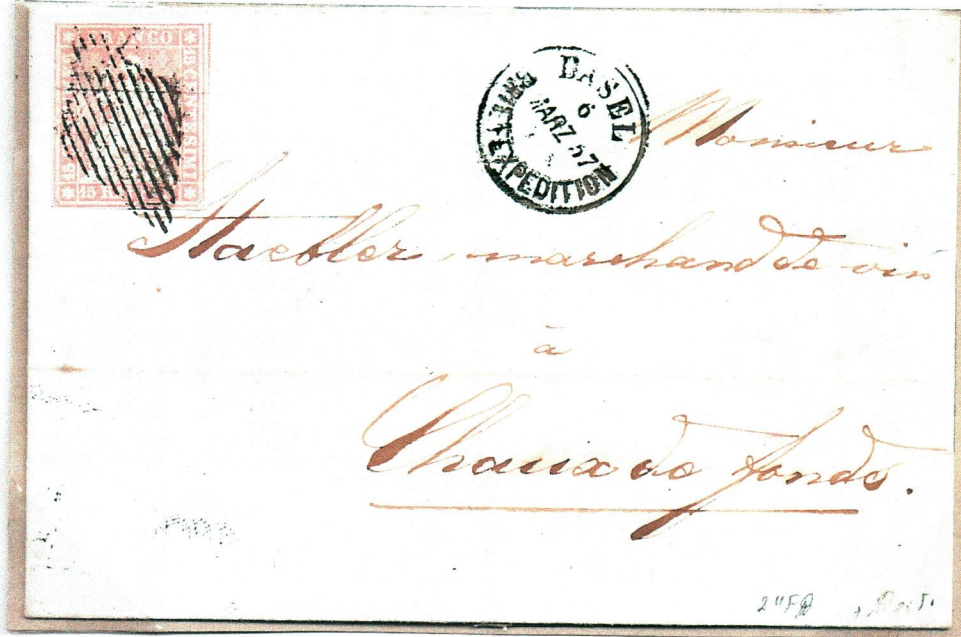 FRANCO
15 CENTESIMI
15 R
BASEL
6
MÄRZ 57
BRIEF EXPEDITION
Monsieur
Staebler, marchand de vin
à
Chaux de fonds.